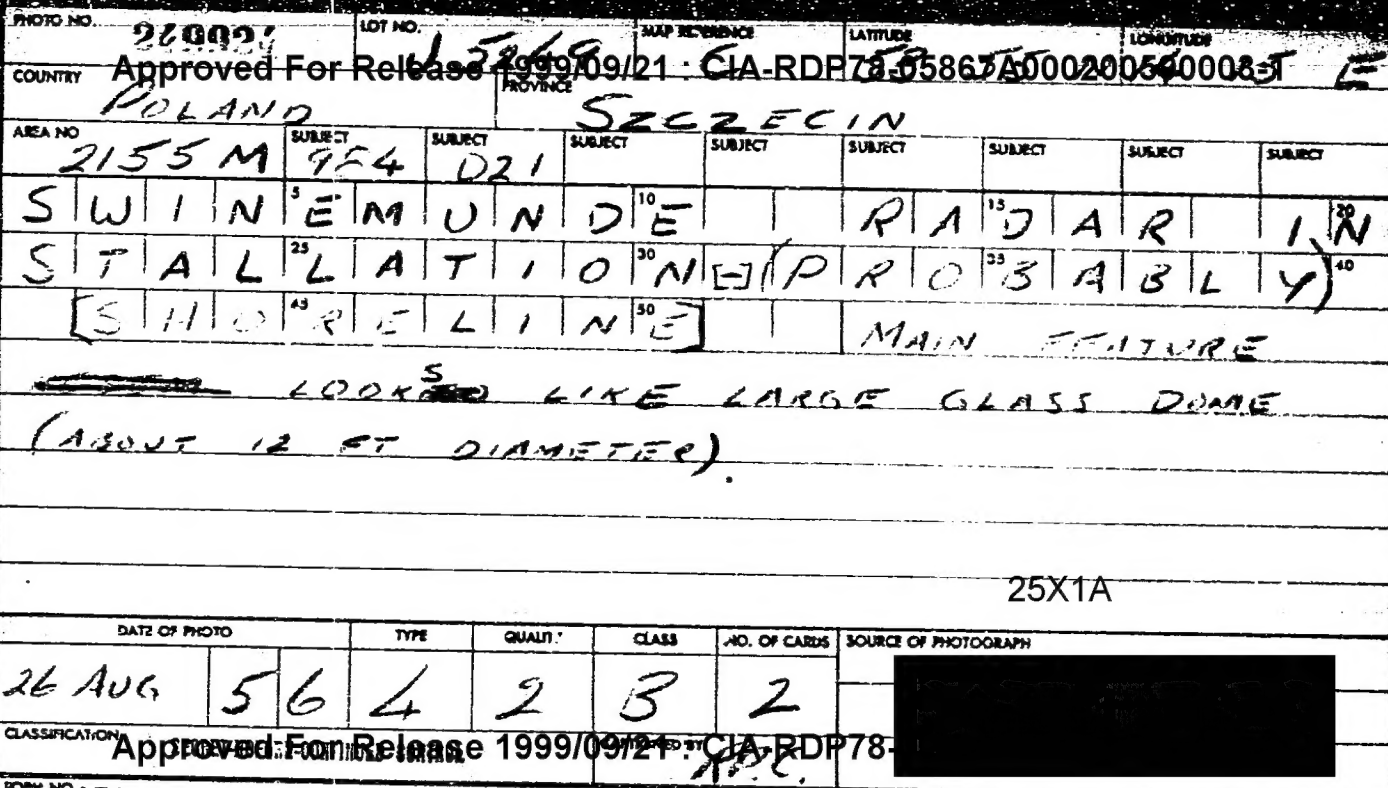 PHOTO NO. LOT NO. MAP REFERENCE LATITUDE LONGITUDE
Approved For Release 1999/09/21 : CIA-RDP78-05867A000200500003-1 E
COUNTRY PROVINCE
POLAND SZCZECIN
AREA NO SUBJECT SUBJECT SUBJECT SUBJECT SUBJECT SUBJECT SUBJECT SUBJECT
2155 M 9F4 D21
SWINEMUNDE RADAR IN
STALLATION [-] (PROBABLY)
[SHORELINE] MAIN FEATURE
LOOKS LIKE LARGE GLASS DOME
(ABOUT 12 FT DIAMETER).
25X1A
DATE OF PHOTO TYPE QUALITY CLASS NO. OF CARDS SOURCE OF PHOTOGRAPH
26 AUG 56 4 2 B 2
CLASSIFICATION
Approved For Release 1999/09/21 : CIA-RDP78-
FORM NO